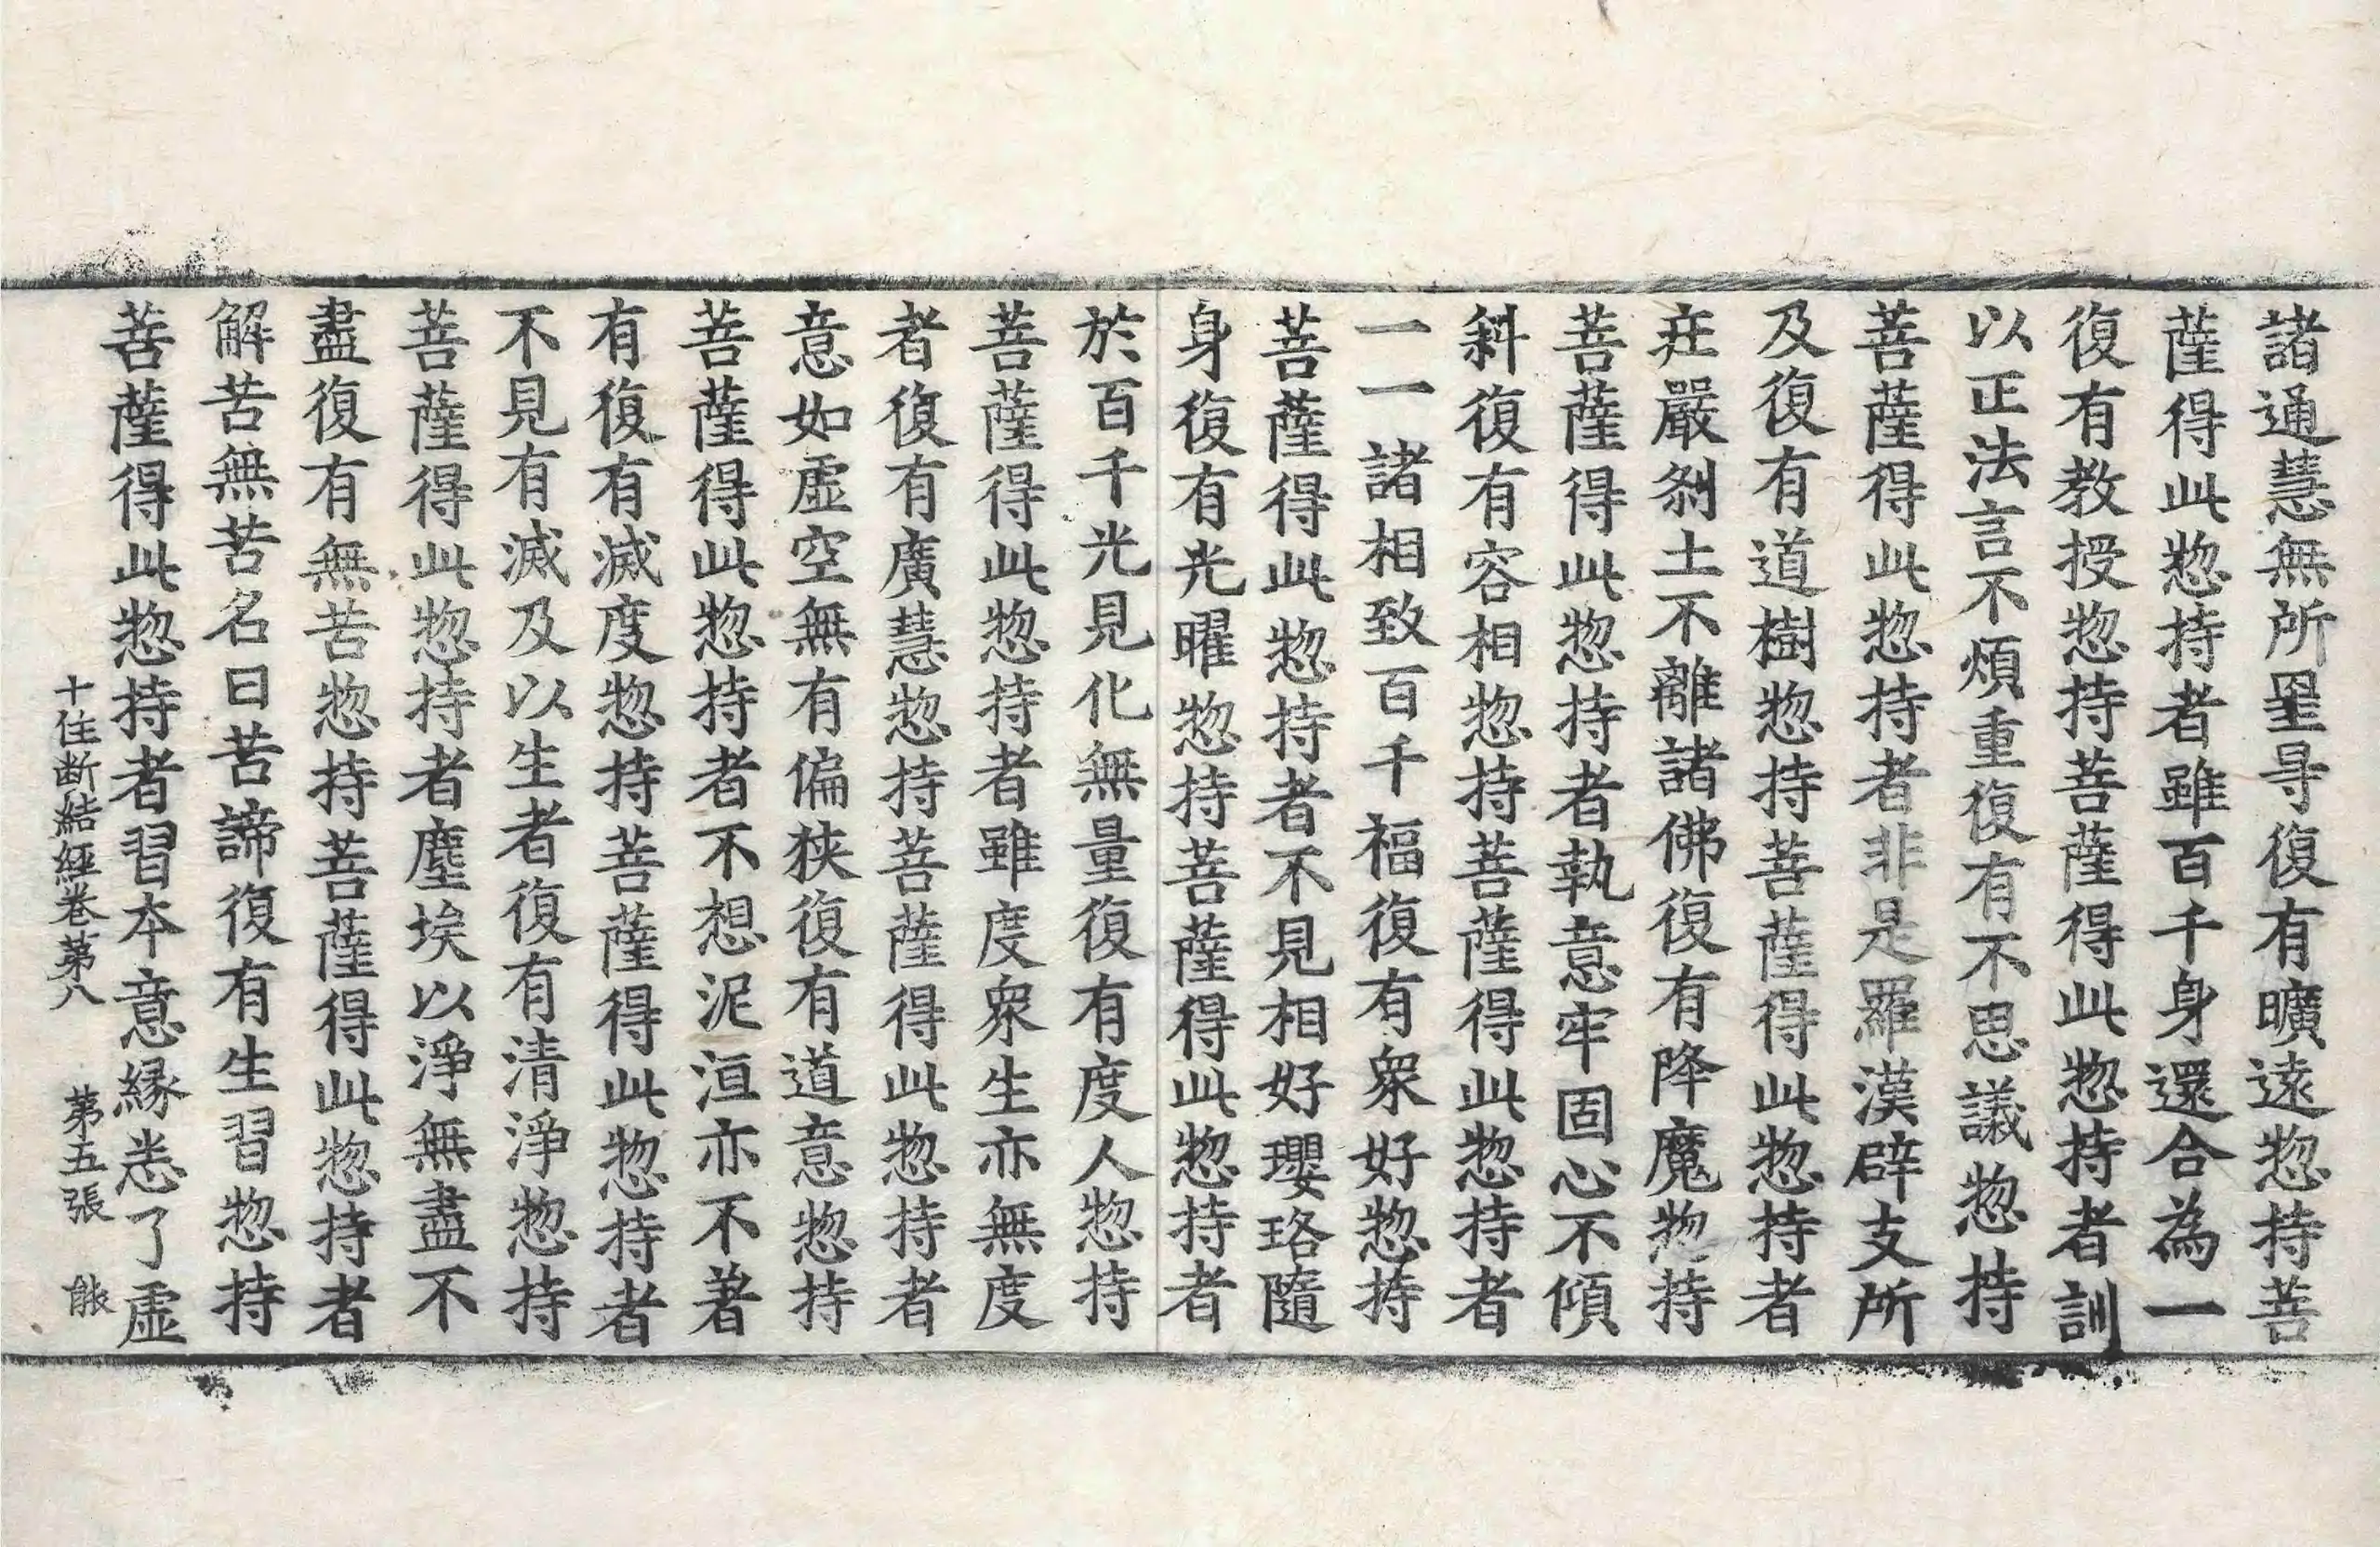 諸通慧無所罣㝵復有曠遠惣持菩
薩得此惣持者雖百千身還合為一
復有教授惣持菩薩得此惣持者訓
以正法言不煩重復有不思議惣持
菩薩得此惣持者非是羅漢辟支所
及復有道樹惣持菩薩得此惣持者
莊嚴刹土不離諸佛復有降魔惣持
菩薩得此惣持者執意牢固心不傾
斜復有容相惣持菩薩得此惣持者
一一諸相致百千福復有衆好惣持
菩薩得此惣持者不見相好瓔珞隨
身復有光曜惣持菩薩得此惣持者
於百千光見化無量復有度人惣持
菩薩得此惣持者雖度衆生亦無度
者復有廣慧惣持菩薩得此惣持者
意如虛空無有偏狹復有道意惣持
菩薩得此惣持者不想泥洹亦不著
有復有滅度惣持菩薩得此惣持者
不見有滅及以生者復有清淨惣持
菩薩得此惣持者塵埃以淨無盡不
盡復有無苦惣持菩薩得此惣持者
解苦無苦名曰苦諦復有生習惣持
菩薩得此惣持者習本意緣悉了虛
十住断結經卷第八 第五張 餦